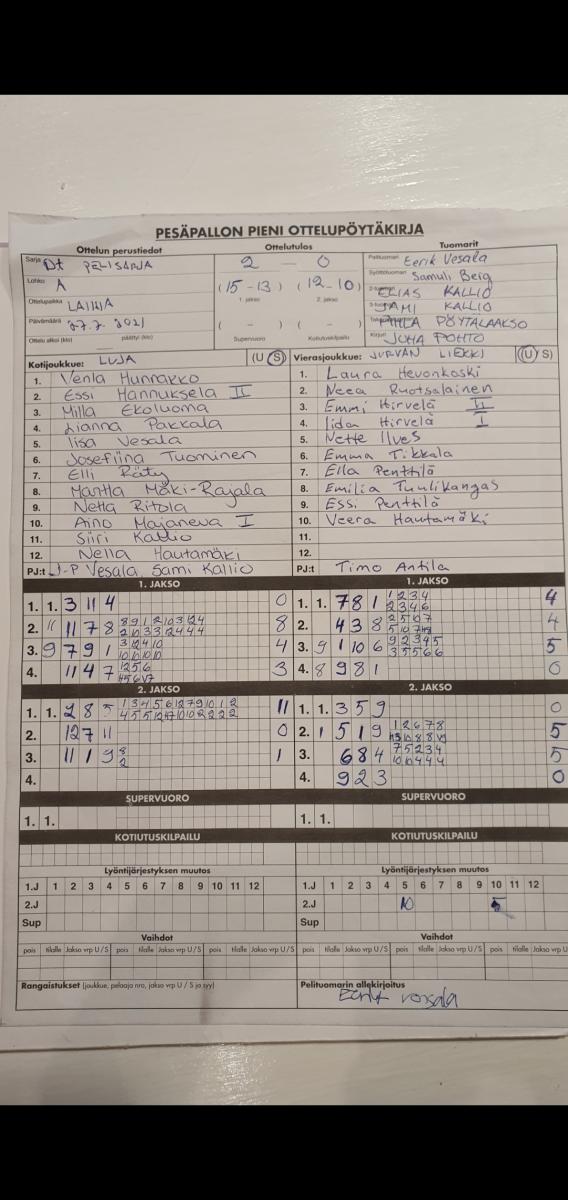 PESÄPALLON PIENI OTTELUPÖYTÄKIRJA
Ottelun perustiedot Ottelutulos Tuomarit
Sarja Dt PELISARJA 2 — 0 Pelituomari Eerik Vesala
Lohko A (15-13) (12-10) Syöttötuomari Samuli Berg
1. jakso 2. jakso ELIAS KALLIO
Ottelupaikka LAIHIA JAMI KALLIO
Päivämäärä 27.7.2021 ( - ) ( - ) PÖYTÄLAAKSO
Ottelu alkoi (klo) päättyi (klo) Supervuoro Kotiutuskilpailu Kirjuri JUHA POHTO
Kotijoukkue: LUJA (U S) Vierasjoukkue: JURVAN LIEKKI (U S)
1. Venla Hunnakko 1. Laura Hevonkoski
2. Essi Hannuksela II 2. Neea Ruotsalainen
3. Milla Ekoluoma 3. Emmi Hirvelä II
4. Lianna Pakkala 4. Iida Hirvelä I
5. Iisa Vesala 5. Nette Ilves
6. Josefiina Tuominen 6. Emma Tikkala
7. Elli Räty 7. Ella Penttilä
8. Martta Mäki-Rajala 8. Emilia Tuulikangas
9. Netta Ritola 9. Essi Penttilä
10. Aino Majaneva I 10. Veera Hautamäki
11. Siiri Kallio 11.
12. Nella Hautamäki 12.
PJ:t J-P Vesala, Sami Kallio PJ:t Timo Antila
1. JAKSO 1. JAKSO
1. 1. 3 11 4 0 1. 1. 7 8 1 1 2 3 4 4
2 3 4 6
2. 11 11 7 8 8 2. 4 3 8 4
3. 9 7 9 1 3 12 4 10 4 3. 9 1 10 6 9 2 3 4 5 5
10 10 10 10 3 5 5 6 6
4. 11 4 7 1 2 5 6 3 4. 8 9 8 1 0
2. JAKSO 2. JAKSO
1. 1. 2 8 5 1 3 4 5 6 12 7 9 10 1 2 11 1. 1. 3 5 9 0
2. 12 7 11 0 2. 1 5 1 9 1 2 6 7 8 5
3. 11 1 9 8 1 3. 6 8 4 7 5 2 3 4 5
2 10 10 4 4 4
4. 4. 9 2 3 0
SUPERVUORO SUPERVUORO
1. 1. 1. 1.
KOTIUTUSKILPAILU KOTIUTUSKILPAILU
Lyöntijärjestyksen muutos Lyöntijärjestyksen muutos
1.J 1 2 3 4 5 6 7 8 9 10 11 12 1.J 1 2 3 4 5 6 7 8 9 10 11 12
2.J 2.J 10 5
Sup Sup
Vaihdot Vaihdot
pois tilalle Jakso vrp U/S pois tilalle Jakso vrp U/S pois tilalle Jakso vrp U/S pois tilalle Jakso vrp U/S pois tilalle Jakso vrp U/S pois tilalle Jakso vrp U/S
Rangaistukset (joukkue, pelaaja nro, jakso vrp U / S ja syy) Pelituomarin allekirjoitus